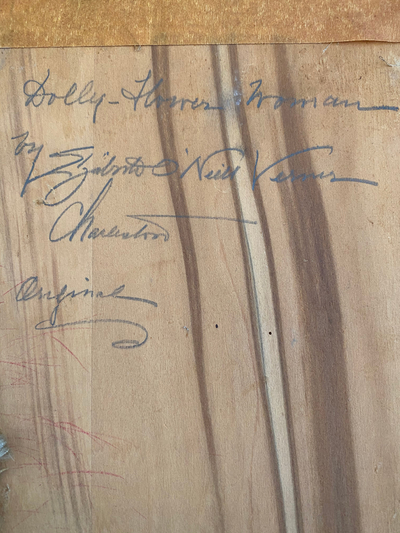 Dolly - Flower Woman
by
Elizabeth O'Neill Verner
Charleston
Original